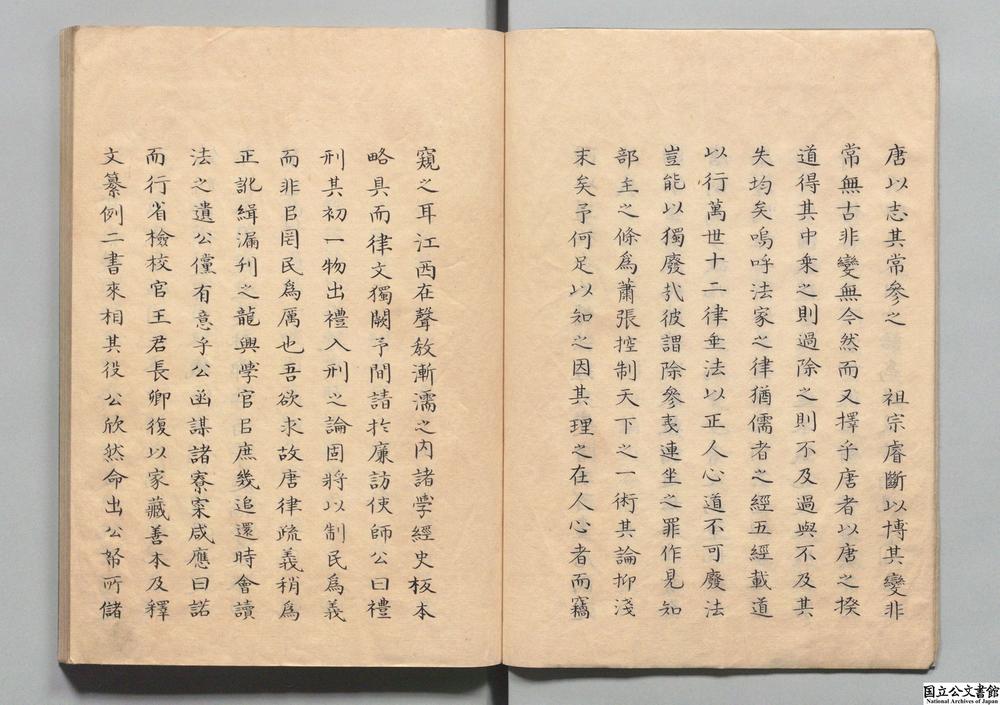 唐以志其常參之　祖宗睿斷以博其變非
常無古非變無今然而又擇乎唐者以唐之揆
道得其中乗之則過除之則不及過與不及其
失均矣嗚呼法家之律猶儒者之經五經載道
以行萬世十二律垂法以正人心道不可廢法
豈能以獨廢㢤彼謂除參夷連坐之罪作見知
部主之條為蕭張控制天下之一術其論抑淺
末矣予何足以知之因其理之在人心者而竊
窺之耳江西在聲敎漸濡之内諸學經史板本
略具而律文獨闕予間請於廉訪使師公曰禮
刑其初一物出禮入刑之論固將以制民為義
而非㠯罔民為厲也吾欲求故唐律疏義稍為
正訛緝漏刊之龍興學官㠯庶幾追還時會讀
法之遺公儻有意乎公函謀諸寮寀咸應曰諾
而行省檢校官王君長卿復以家藏善本及釋
文纂例二書來相其役公欣然命出公帑所儲
国立公文書館
National Archives of Japan